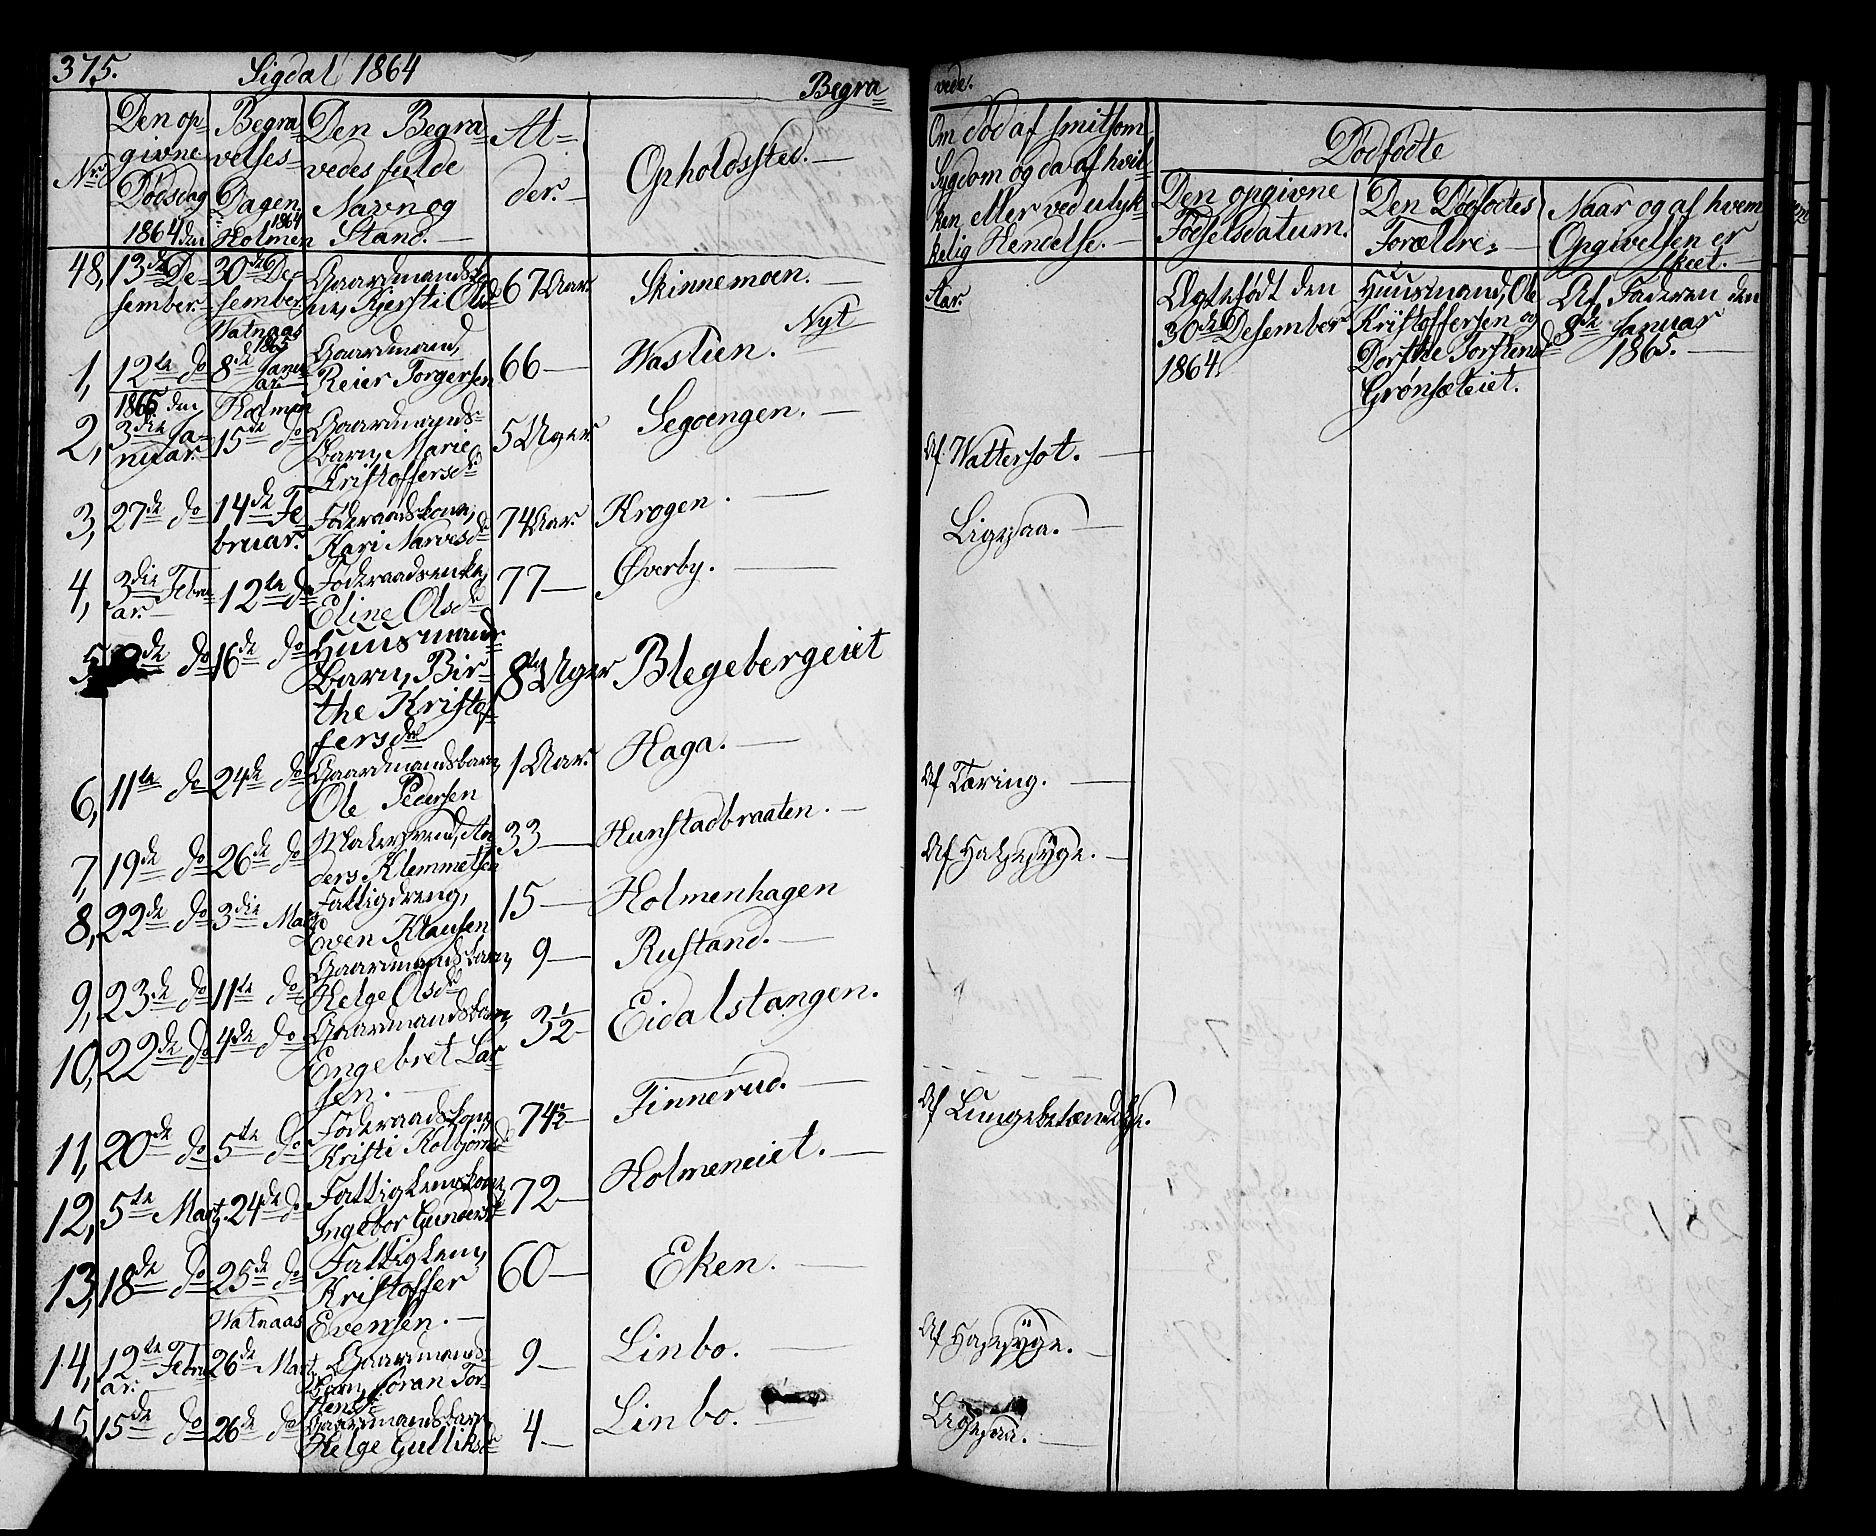 375. Sigdal 1864 Begra=
vede.
No. Den op= givne Dødsdag 1864 den
Begra= velses= Dagen 1864 Holmen
Den Begra= vedes fulde Navn og Stand.—
Al= der.—
Opholdssted.—
Om død af smitsom Sygdom og da af hvil= ken, eller ved ulyk= kelig Hendelse.—
Dødfødte
Den opgivne Fødselsdatum.
Den Dødfødtes Forældre.—
Naar og af hvem Opgivelsen er skeet.—
48, 13de De= sember. 30de De= sember Gaardmandsko= ne, Kjersti Olsd 67 Aar. Skinnemoen.—
Aar.
Ægtefødt den 30de Desember 1864.
Huusmand, Ole Kristoffersen og Dorthe Torstensd Grønsæteiet.
Af Faderen den 8de Januar 1865.—
Nyt
Vatnaas 1865
1, 12te do 8de Janu= ar Gaardmand, Reier Torgersen 66— Vaslien.
1865 den Holmen
2, 3die Ja= nuar. 15de do Gaardmands= barn, Marie Kristoffersd 5 Uger. Segoengen.— Af Vattersot.—
3, 27de do 14de Fe= bruar. Føderaadskone, Kari Narvesd 74 Aar. Krogen.— Ligesaa.—
4, 3die Febru= ar.— 12te do Føderaadsenke, Eline Olsd 77— Øverby.—
5, de do 16de do Huusmands= barn, Bir= the Kristof= fersd 8 Uger Blegebergeiet
6, 11te do 24de do Gaardmandsbarn, Ole Pedersen 1 Aar. Haga.— Af Tæring.—
7, 19de do 26de do Malersvend, An= ders Klemmetsen 33— Hunstadbraaten.— Af Halsesyge.—
8, 22de do 3die Marts Fattigdreng, Even Klausen 15— Holmenhagen
9, 23de do 11te do Gaardmandsbarn, Helge Olsd 9— Rustand.—
10, 22de do 4de do Gaardmandsbarn, Engebret Lar= sen.— 3½ Eidalstangen.
11, 20de do 5te do Føderaadskone, Kristi Kolbjørnsd 74½ Finnerud.— Af Lungebetændelse.
12, 5te Marts. 24de do Fattiglemskone, Ingebor Gundersd 72— Holmeneiet.—
13, 18de do 25de do Fattiglem, Kristoffer Evensen.— 60— Eken.—
Vatnaas
14, 12te Febru= ar.— 26de Marts Gaardmands= barn, Joran Tor= stensd 9— Linbo.— Af Halsesyge.—
15, 15de do 26de do Gaardmandsbarn, Helge Gulliksd 4— Linbo. Ligesaa.—